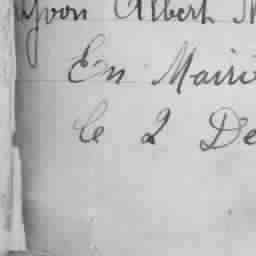 Yvon Albert M
En Mairi
le 2 De